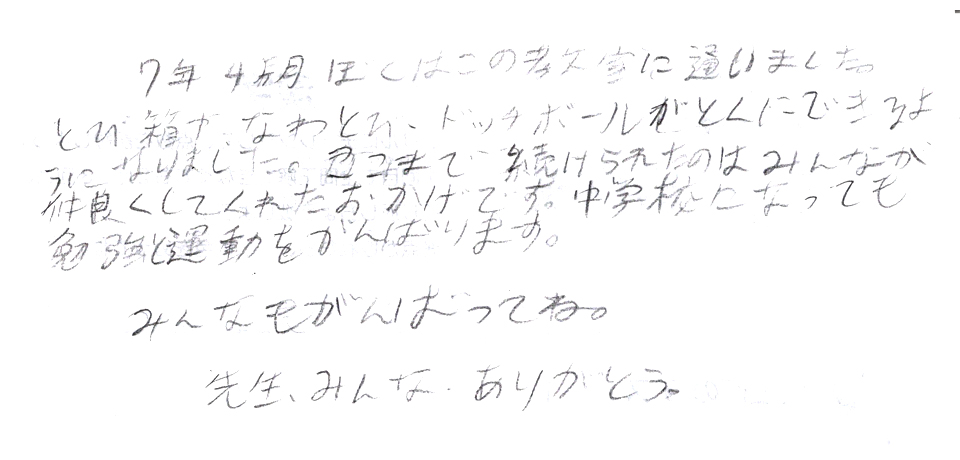 7年4ヵ月ぼくはこの教室に通いました。
とび箱やなわとび、ドッチボールがとくにできるよ
うになりました。ここまで続けられたのはみんなが
仲良くしてくれたおかげです。中学校になっても
勉強と運動をがんばります。
みんなもがんばってね。
先生、みんな、ありがとう。